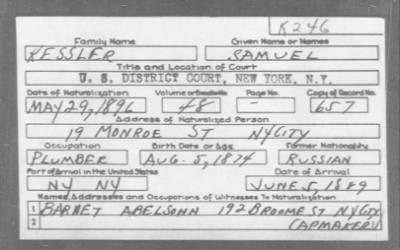 K246
Family Name Given Name or Names
KESSLER SAMUEL
Title and Location of Court
U. S. DISTRICT COURT, NEW YORK, N.Y.
Date of Naturalization Volume or Bundle No. Page No. Copy of Record No.
MAY 29, 1896 48 - 657
Address of Naturalized Person
19 MONROE ST NYCITY
Occupation Birth Date or Age Former Nationality
PLUMBER AUG. 5, 1874 RUSSIAN
Port of Arrival in the United States Date of Arrival
NY NY JUNE 5, 1889
Names, Addresses and Occupations of Witnesses To Naturalization
1 BARNET ABELSOHN 192 BROOME ST NYCITY
2 CAPMAKER